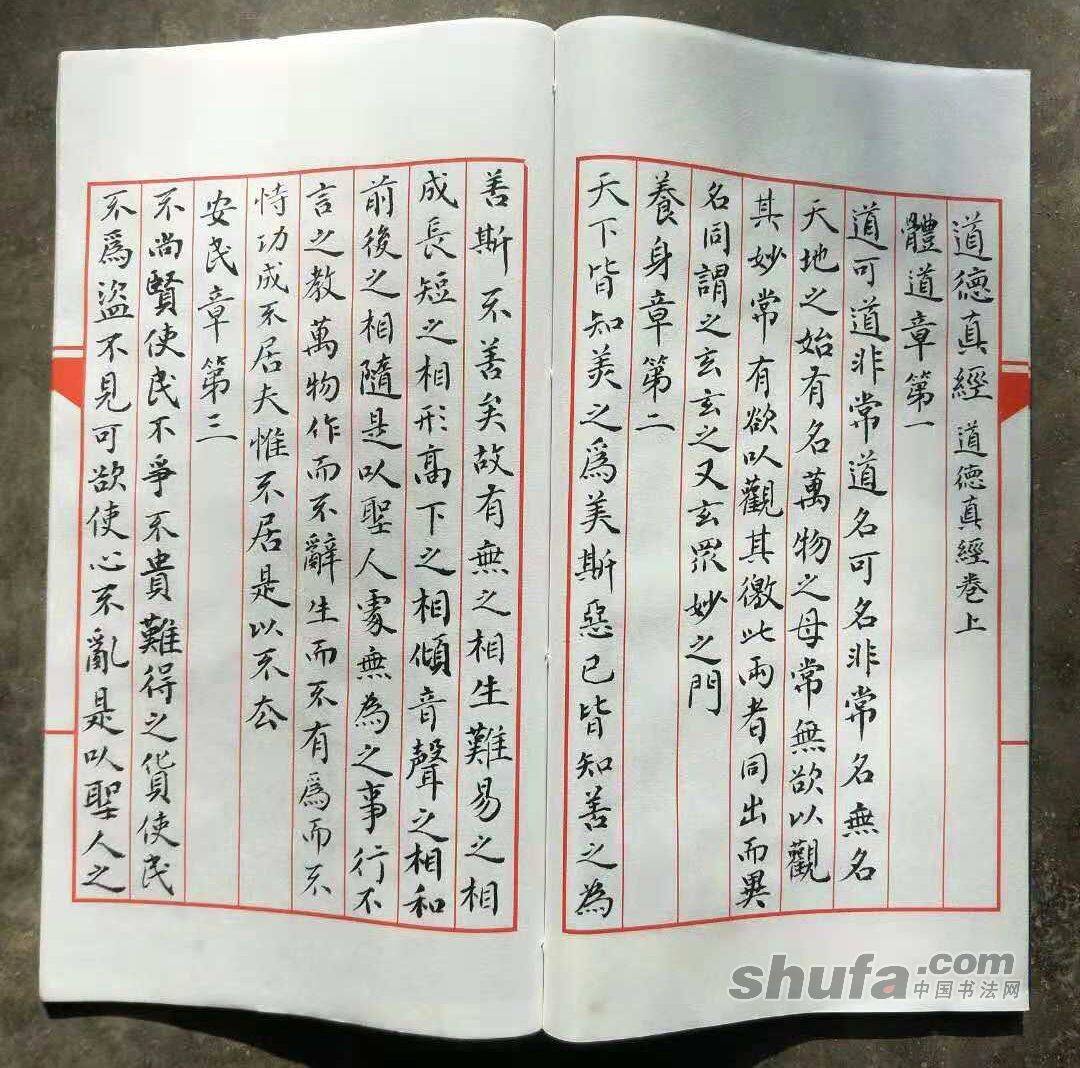 道德真經 道德真經卷上
體道章第一
道可道非常道名可名非常名無名
天地之始有名萬物之母常無欲以觀
其妙常有欲以觀其徼此兩者同出而異
名同謂之玄玄之又玄眾妙之門
養身章第二
天下皆知美之爲美斯惡已皆知善之為
善斯不善矣故有無之相生難易之相
成長短之相形高下之相傾音聲之相和
前後之相隨是以聖人處無為之事行不
言之教萬物作而不辭生而不有爲而不
恃功成不居夫惟不居是以不去
安民章第三
不尚賢使民不爭不貴難得之貨使民
不爲盜不見可欲使心不亂是以聖人之
shufa.com
中国书法网